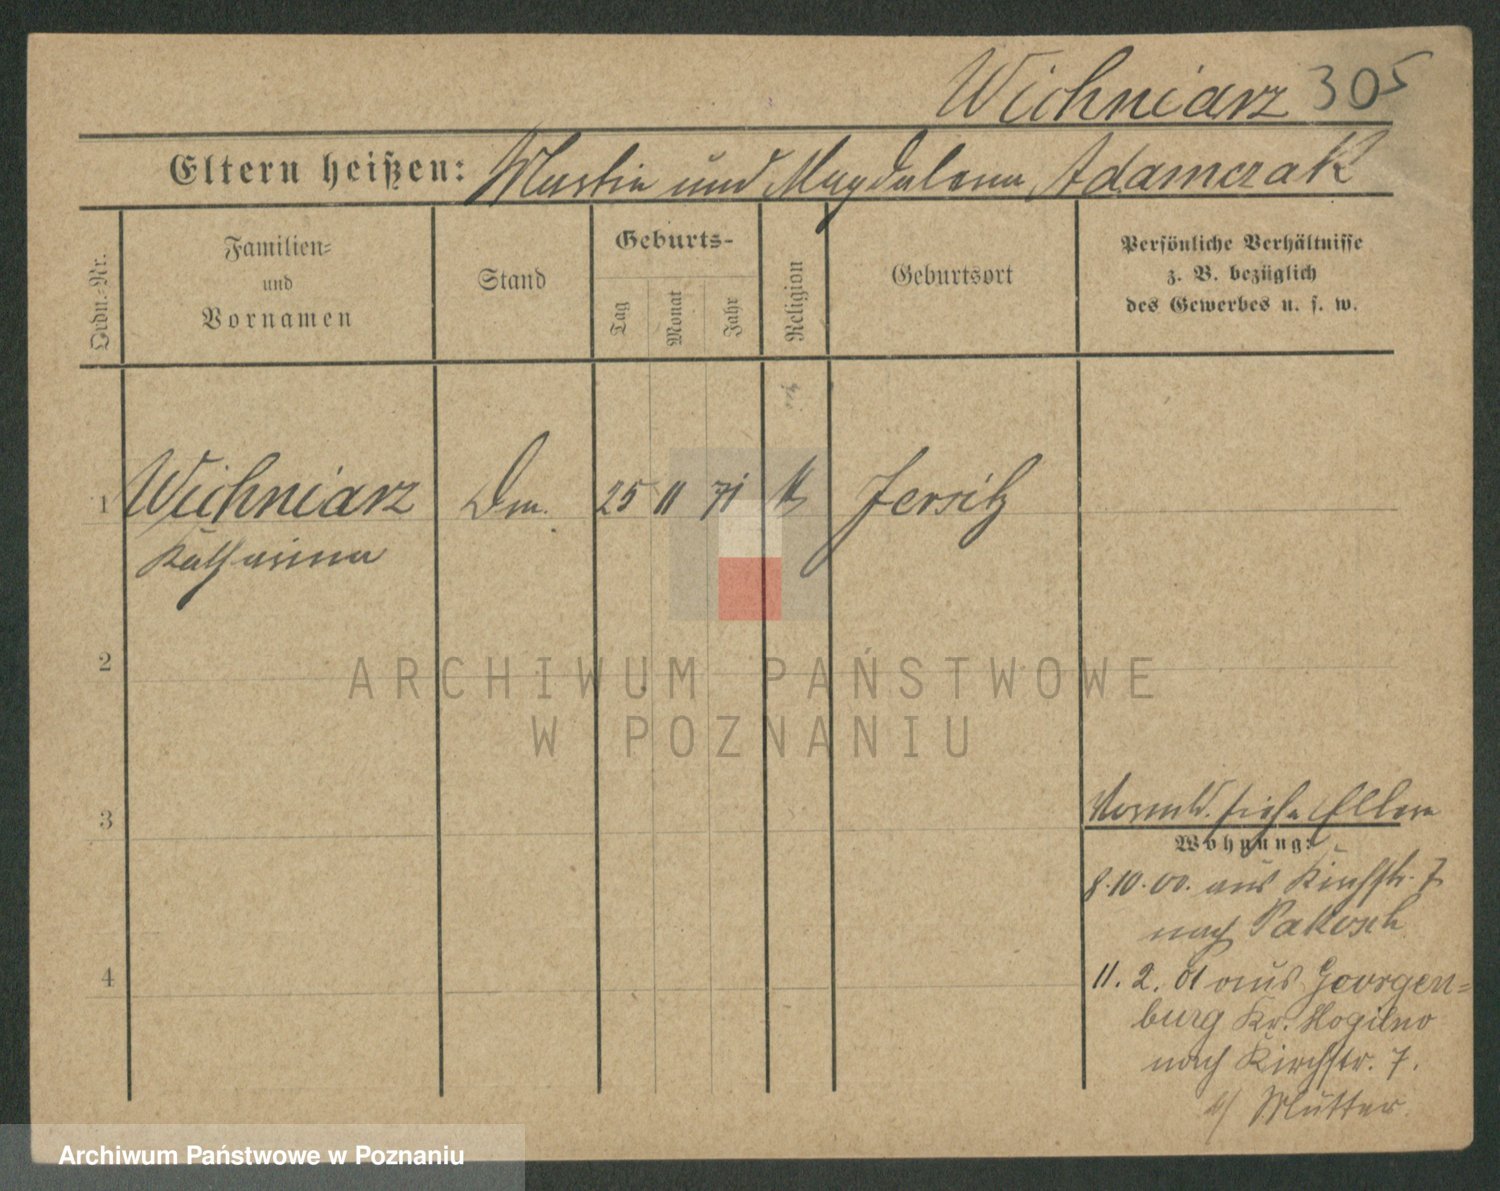 Wichniarz 305
Eltern heißen: Martin und Magdalena Adamczak
Ordn.-Nr.
Familien-
und
Vornamen
Stand
Geburts-
Tag
Monat
Jahr
Religion
Geburtsort
Persönliche Verhältnisse
z. B. bezüglich
des Gewerbes u. s. w.
1 Wichniarz Dm. 25 11 71 k Jersitz
Katharina
2
ARCHIWUM PAŃSTWOWE
W POZNANIU
3
siehe Eltern
Wohnung:
8.10.00. aus Kirchstr. 7
nach Pakosch
4
11. 2. 01 aus Georgen=
burg Kr. Mogilno
nach Kirchstr. 7.
b/ Mutter.
Archiwum Państwowe w Poznaniu